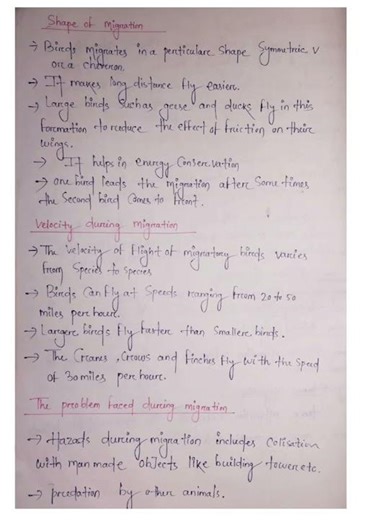 Shape of migration
→ Birds migrates in a perticulare shape Symmetric V
or a chevron.
→ It makes long distance fly easier.
→ Large birds suchas geese and ducks fly in this
formation to reduce the effect of friction on their
wings.
→ It helps in energy Conservation
→ one bird leads the migration after some times
the Second bird Comes to front.
Velocity during migration
→ The velocity of flight of migratory birds varies
from Species to Species
→ Birds Can fly at Speeds ranging from 20 to 50
miles per hour.
→ Larger birds fly faster than Smaller birds.
→ The Cranes, Crows and finches fly with the Speed
of 30 miles per hour.
The problem faced during migration
→ Hazads during migration includes Colisation
with man made objects like building tower etc.
→ predation by other animals.